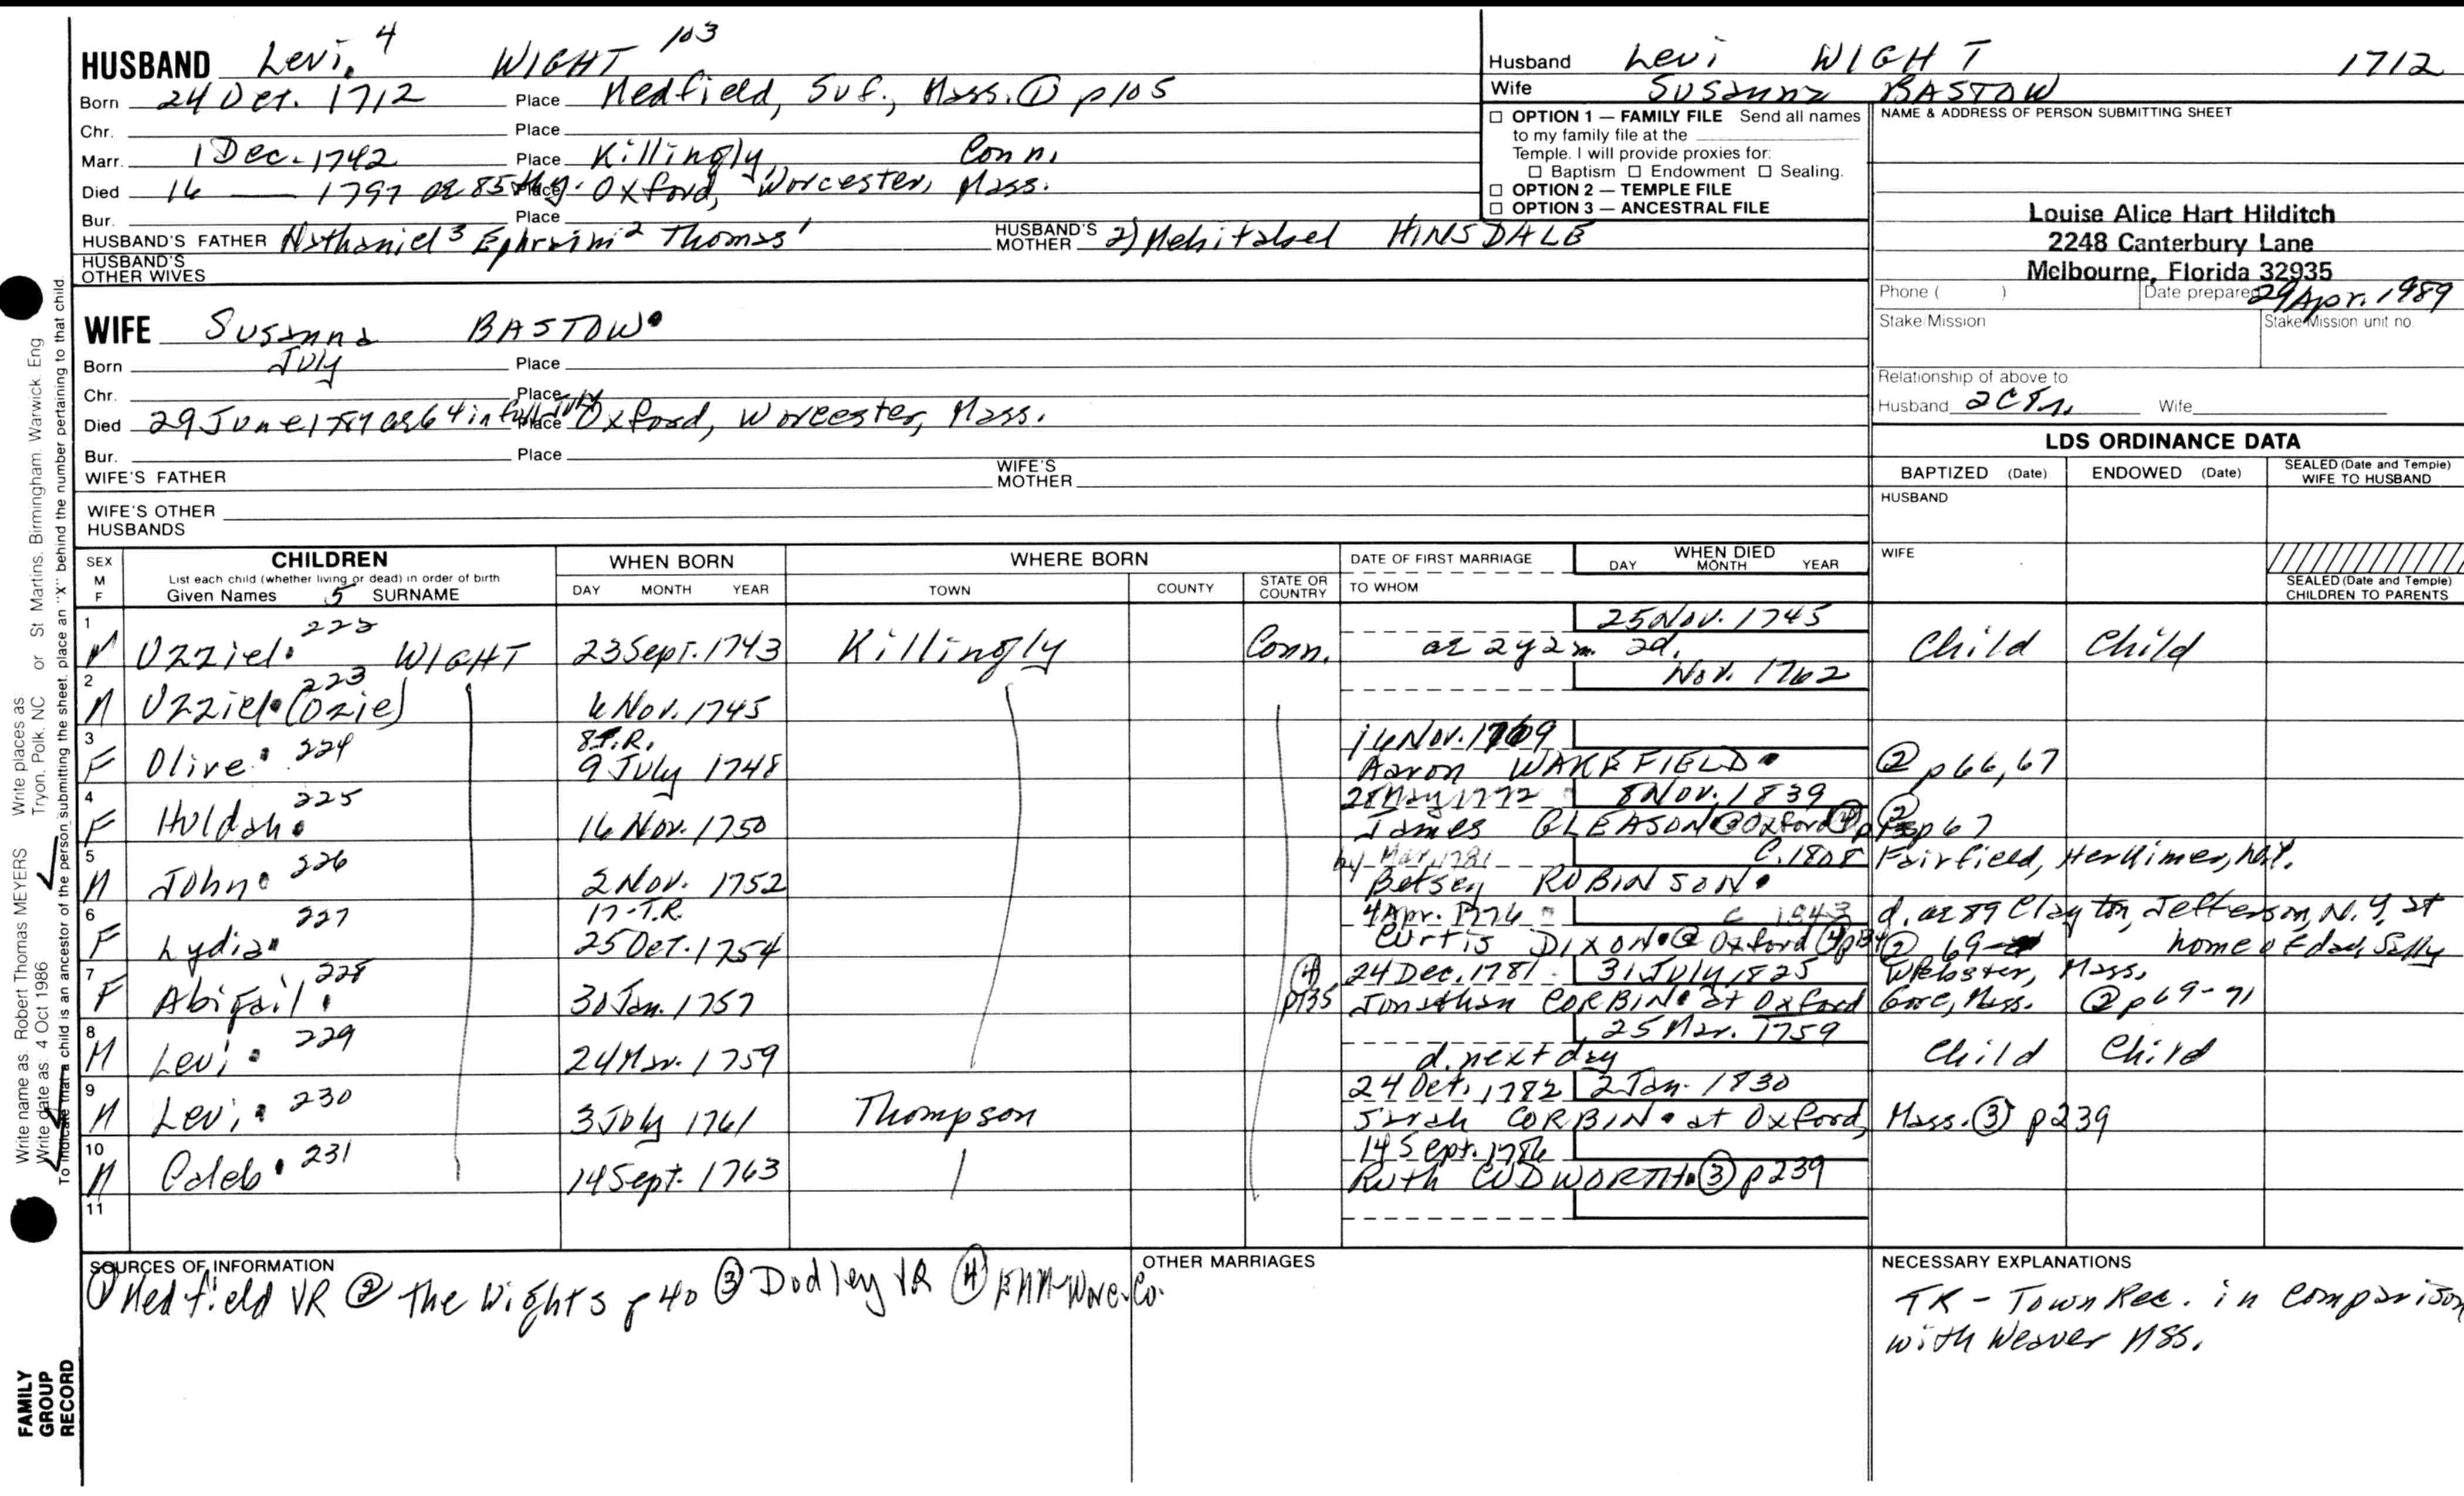 HUSBAND Levi 4 WIGHT 103
Born 24 Oct. 1712 Place Medfield, Suf., Mass. ① p105
Chr. Place
Marr. 1 Dec. 1742 Place Killingly, Conn.
Died 16 — 1797 ae 85th y. Place Oxford, Worcester, Mass.
Bur. Place
HUSBAND'S FATHER Nathaniel 3 Ephraim 2 Thomas 1 HUSBAND'S MOTHER 2) Mehitabel HINSDALE
HUSBAND'S OTHER WIVES
WIFE Susanna BASTOW
Born July Place
Chr. Place
Died 29 June 1787 ae 64 in full July Place Oxford, Worcester, Mass.
Bur. Place
WIFE'S FATHER WIFE'S MOTHER
WIFE'S OTHER HUSBANDS
Husband Levi WIGHT 1712
Wife Susanna BASTOW
OPTION 1 — FAMILY FILE Send all names
to my family file at the
Temple. I will provide proxies for:
Baptism Endowment Sealing.
OPTION 2 — TEMPLE FILE
OPTION 3 — ANCESTRAL FILE
NAME & ADDRESS OF PERSON SUBMITTING SHEET
Louise Alice Hart Hilditch
2248 Canterbury Lane
Melbourne, Florida 32935
Phone ( ) Date prepared 29 Apr. 1989
Stake/Mission Stake/Mission unit no.
Relationship of above to
Husband Wife
LDS ORDINANCE DATA
BAPTIZED (Date) ENDOWED (Date) SEALED (Date and Temple) WIFE TO HUSBAND
HUSBAND
WIFE
SEALED (Date and Temple) CHILDREN TO PARENTS
SEX M F
CHILDREN
List each child (whether living or dead) in order of birth
Given Names 5 SURNAME
WHEN BORN
DAY MONTH YEAR
WHERE BORN
TOWN COUNTY STATE OR COUNTRY
DATE OF FIRST MARRIAGE
TO WHOM
WHEN DIED
DAY MONTH YEAR
1 M Uzziel 222 WIGHT 23 Sept. 1743 Killingly Conn. 25 Nov. 1745
ae 2y 2m 2d. Child Child
2 M Uzziel (Ozie) 223 6 Nov. 1745 Nov. 1762
3 F Olive 224 8 T.R. 9 July 1748 16 Nov. 1769
Aaron WAKEFIELD ② p66, 67
4 F Huldah 225 16 Nov. 1750 28 May 1772 8 Nov. 1839
James GLEASON @ Oxford ④ p67
5 M John 226 2 Nov. 1752 by Mar. 1781 C. 1808 Fairfield, Herkimer, N.Y.
Betsey ROBINSON
6 F Lydia 227 17-T.R. 25 Oct. 1754 4 Apr. 1776 c 1843 d. ae 89 Clayton, Jefferson, N.Y. at
Curtis DIXON @ Oxford ④ p134 ② 69 home of dau Sally
7 F Abigail 228 30 Jan. 1757 ④ p135 24 Dec. 1781 31 July 1825 Webster, Mass.
Jonathan CORBIN at Oxford Gore, Mass. ② p69-71
8 M Levi 229 24 Mar. 1759 25 Mar. 1759
d. next day Child Child
9 M Levi 230 3 July 1761 Thompson 24 Oct. 1782 2 Jan. 1830
Sarah CORBIN at Oxford, Mass. ③ p239
10 M Caleb 231 14 Sept. 1763 14 Sept. 1786
Ruth CUDWORTH ③ p239
11
SOURCES OF INFORMATION
① Medfield VR ② The Wights p 40 ③ Dudley VR ④ Worc. Co.
OTHER MARRIAGES
NECESSARY EXPLANATIONS
TR - Town Rec. in comparison
with Weaver MSS.
Write name as: Robert Thomas MEYERS Write places as: Tryon, Polk, NC or St Martins, Birmingham, Warwick, Eng
Write date as: 4 Oct 1986
To indicate that a child is an ancestor of the person submitting the sheet, place an "X" behind the number pertaining to that child.
FAMILY
GROUP
RECORD